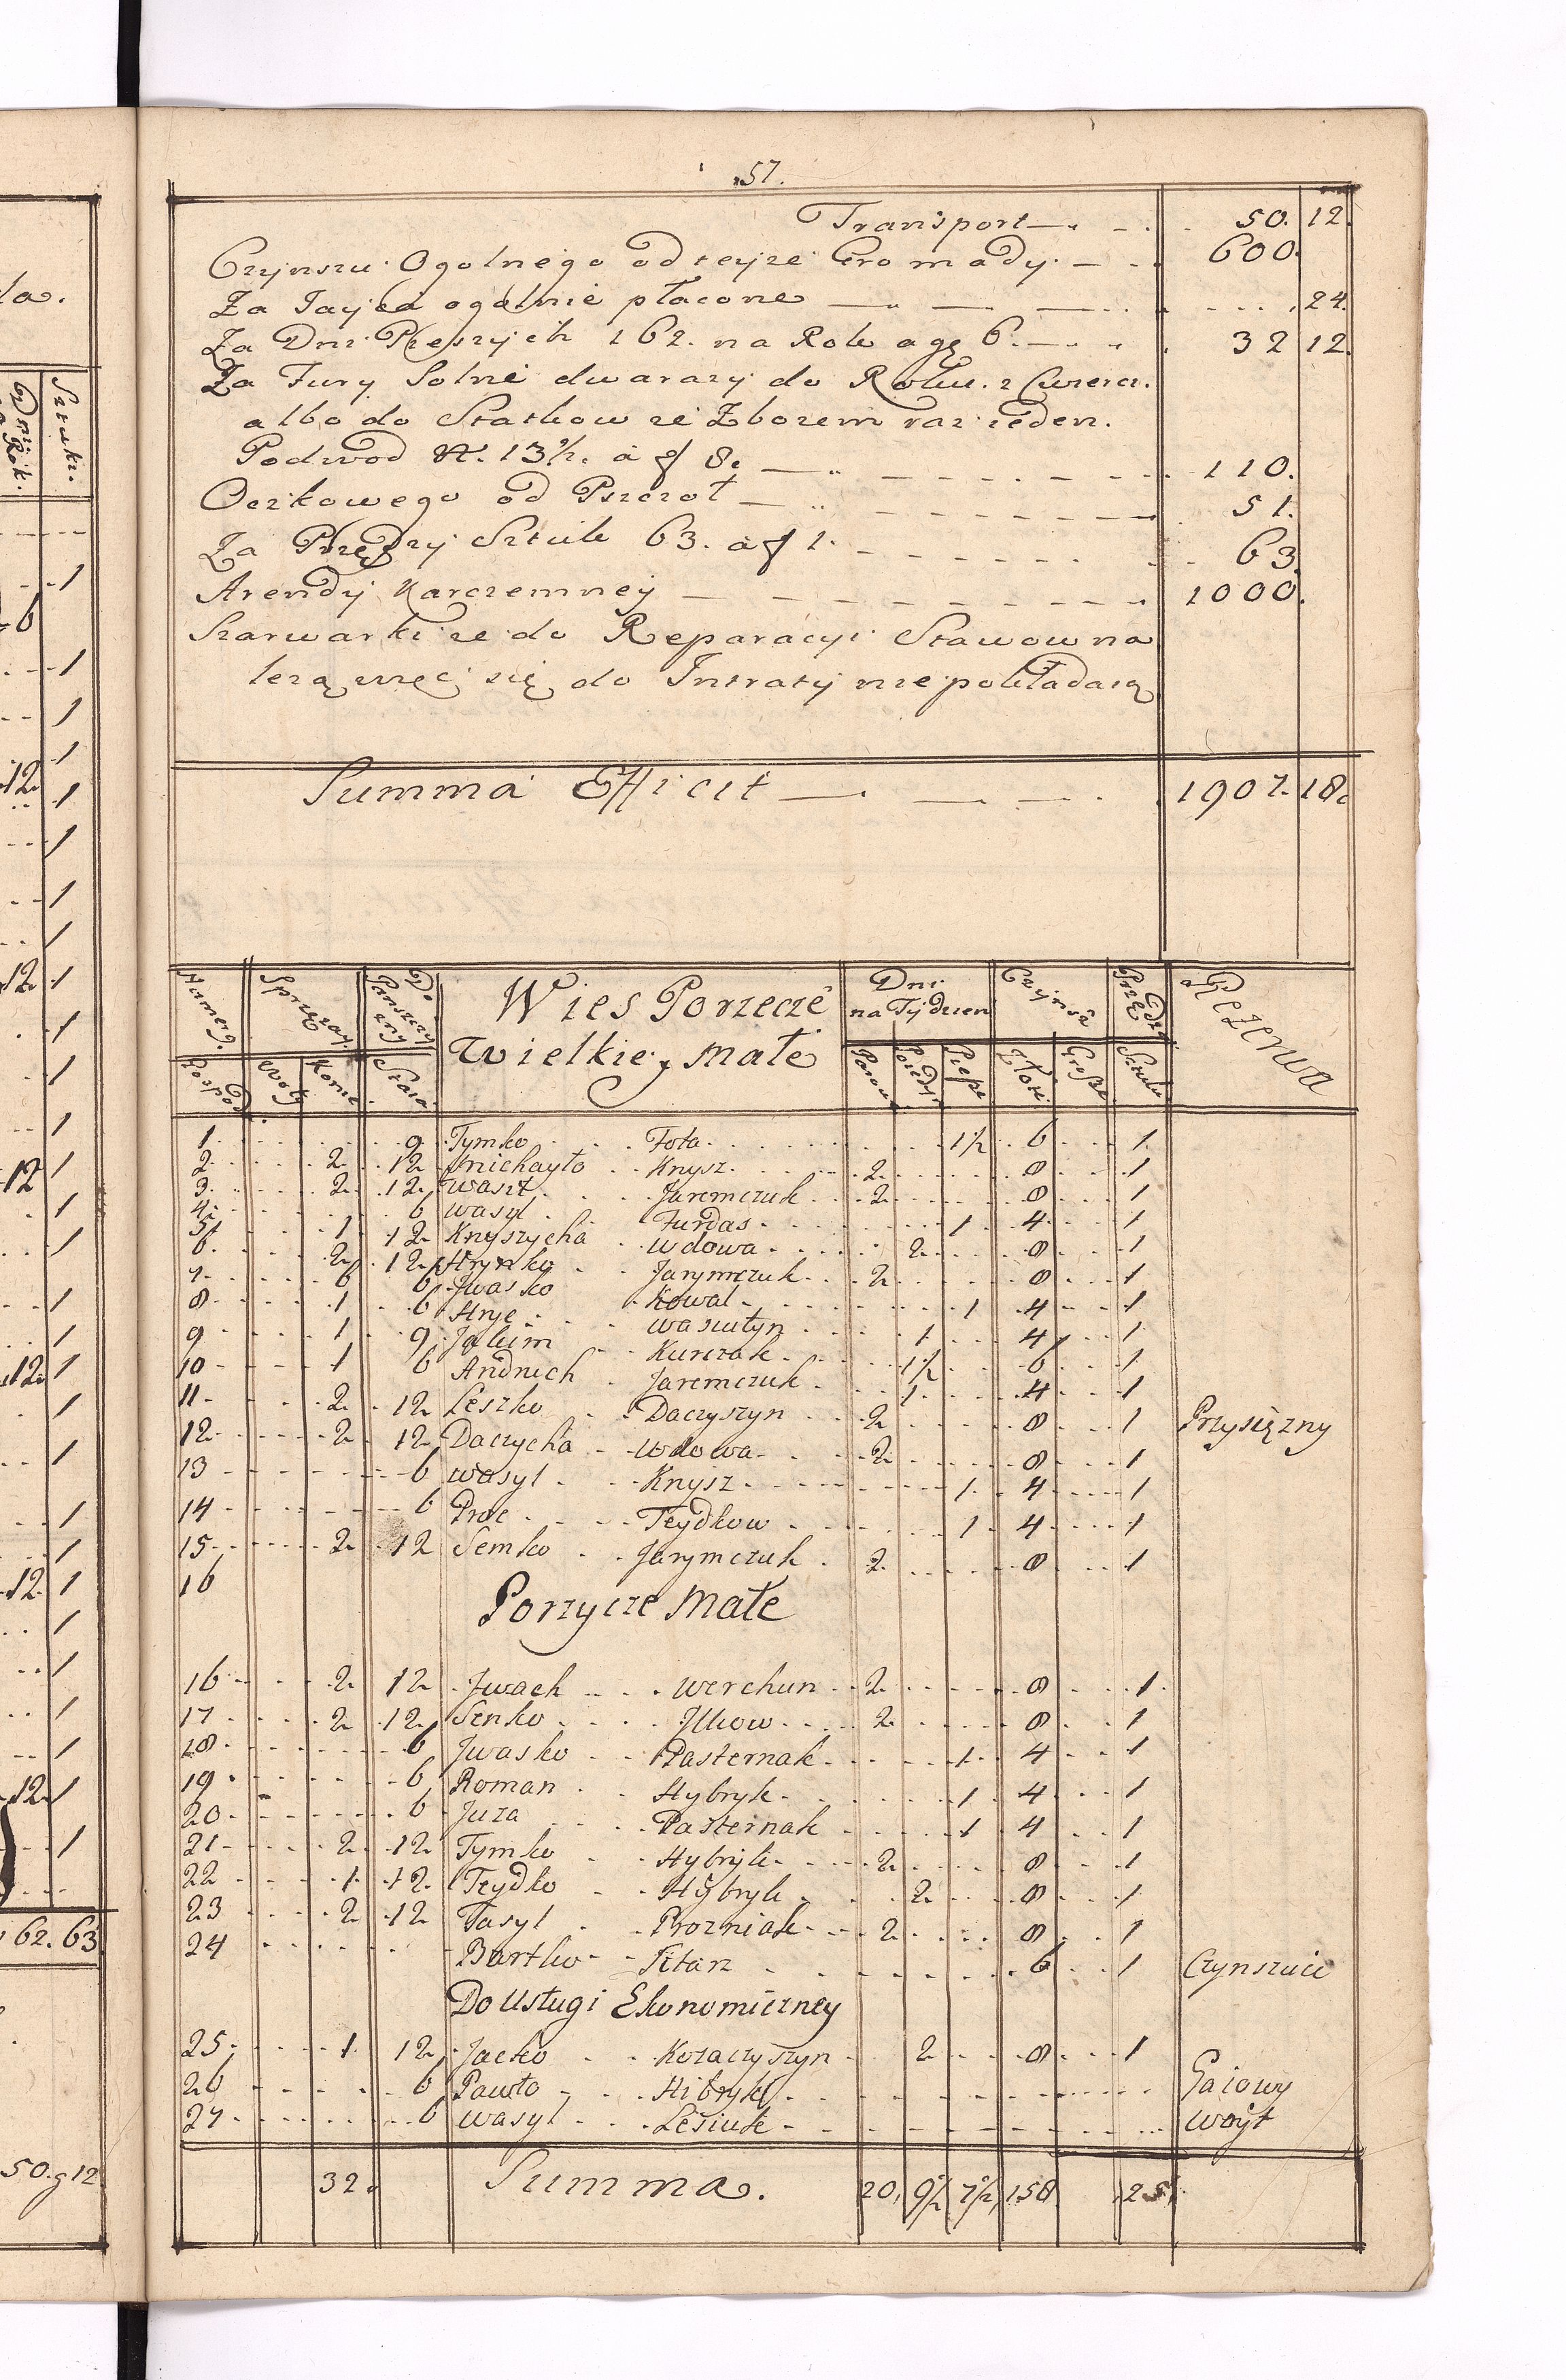 57.
Transport 50. 12.
Czynszu Ogolnego od teyze Gromady 600.
Za Jayca ogolnie płacone 24.
Za Dni Pieszych 162. na Rok a gę 6. 32 12.
Za Fury Solne dwa razy do Roku. z
albo do Statkow ze Zbozem raz ieden.
Podwod N. 13 1/2. a f 8. 110.
Oczkowego od Pszczoł 51.
Za Przędzy Sztuk 63. a f 1. 63.
Arendy Karczemney 1000.
Szarwarki ze do Reparacyi Stawow na
lezą więc się do Intraty nie pokładaią
Summa Efficit 1907. 18.
Numerg. Sprzęzay Do Panszczyzny Wies Porzecze Dni na Tydzien Czynsz Przędza Rezerwa
Gospod. Woły Konie Stara Wielkie y Małe Parou Poiedy Piesze Złote Grosze Sztuka
1. 9. Tymko Fota 1 1/2 6 1.
2. 2. 12. Michayło Knysz 2. 8 1
3. 2. 12. Waszt Jaremczuk 2. 8 1
4. 6 Wasyl Furdas 1 4. 1
5. 1 12. Knyszycha Wdowa 2. 8 1
6. 2. 12. Hrynko Jarymczuk 2. 8 1
7. 6 6 Jwasko Kowal 1 4 1
8. 1 6 Hryc Wasiutyn 1. 4 1
9. 1 9. Jakim Kurczak 1 1/2 6 1
10 1 6 Andruch Jaremczuk 1. 4 1
11. 2. 12 Leszko Daczyszyn 2. 8 1 Przysięzny
12. 2. 12. Daczycha Wdowa 2. 8 1
13 6 Wasyl Knysz 1. 4 1
14 6 Proc Feydkow 1 4 1
15. 2. 12 Semko Jarymczuk 2. 8 1
16
Porzycze Małe
16 2. 12 Jwach Werchun 2. 8 1.
17 2. 12. Senko Jlkow 2. 8 1
18. 6 Jwasko Pasternak 1. 4 1
19. 6 Roman Hybryk 1 4 1
20. 6 Juza Pasternak 1 4 1
21 2. 12. Tymko Hybryk 2. 8 1
22 1. 12. Feydko Hybryk 2. 8 1
23 2. 12 Fasyl Prozniak 2. 8 1
24 Bartko Titarz 6 1 Czynszuie
Do Usługi Ekonomiczney
25. 1. 12 Jacko Kozaczyszyn 2. 8 1
26 6 Pawło Hibryk Gaiowy
27. 6 Wasyl Lesiuk Woyt
32. Summa. 20. 9 1/2 7 1/2 158 25.
la.
Sztuki.
Dni na Rok.
1
6
1
1
1
12. 1
1
1
1
12. 1
1
1
1
12 1
1
1
1
1
12. 1
1
1
1
1
12. 1
1
1
1
1
12. 1
1
162. 63
50. g 12